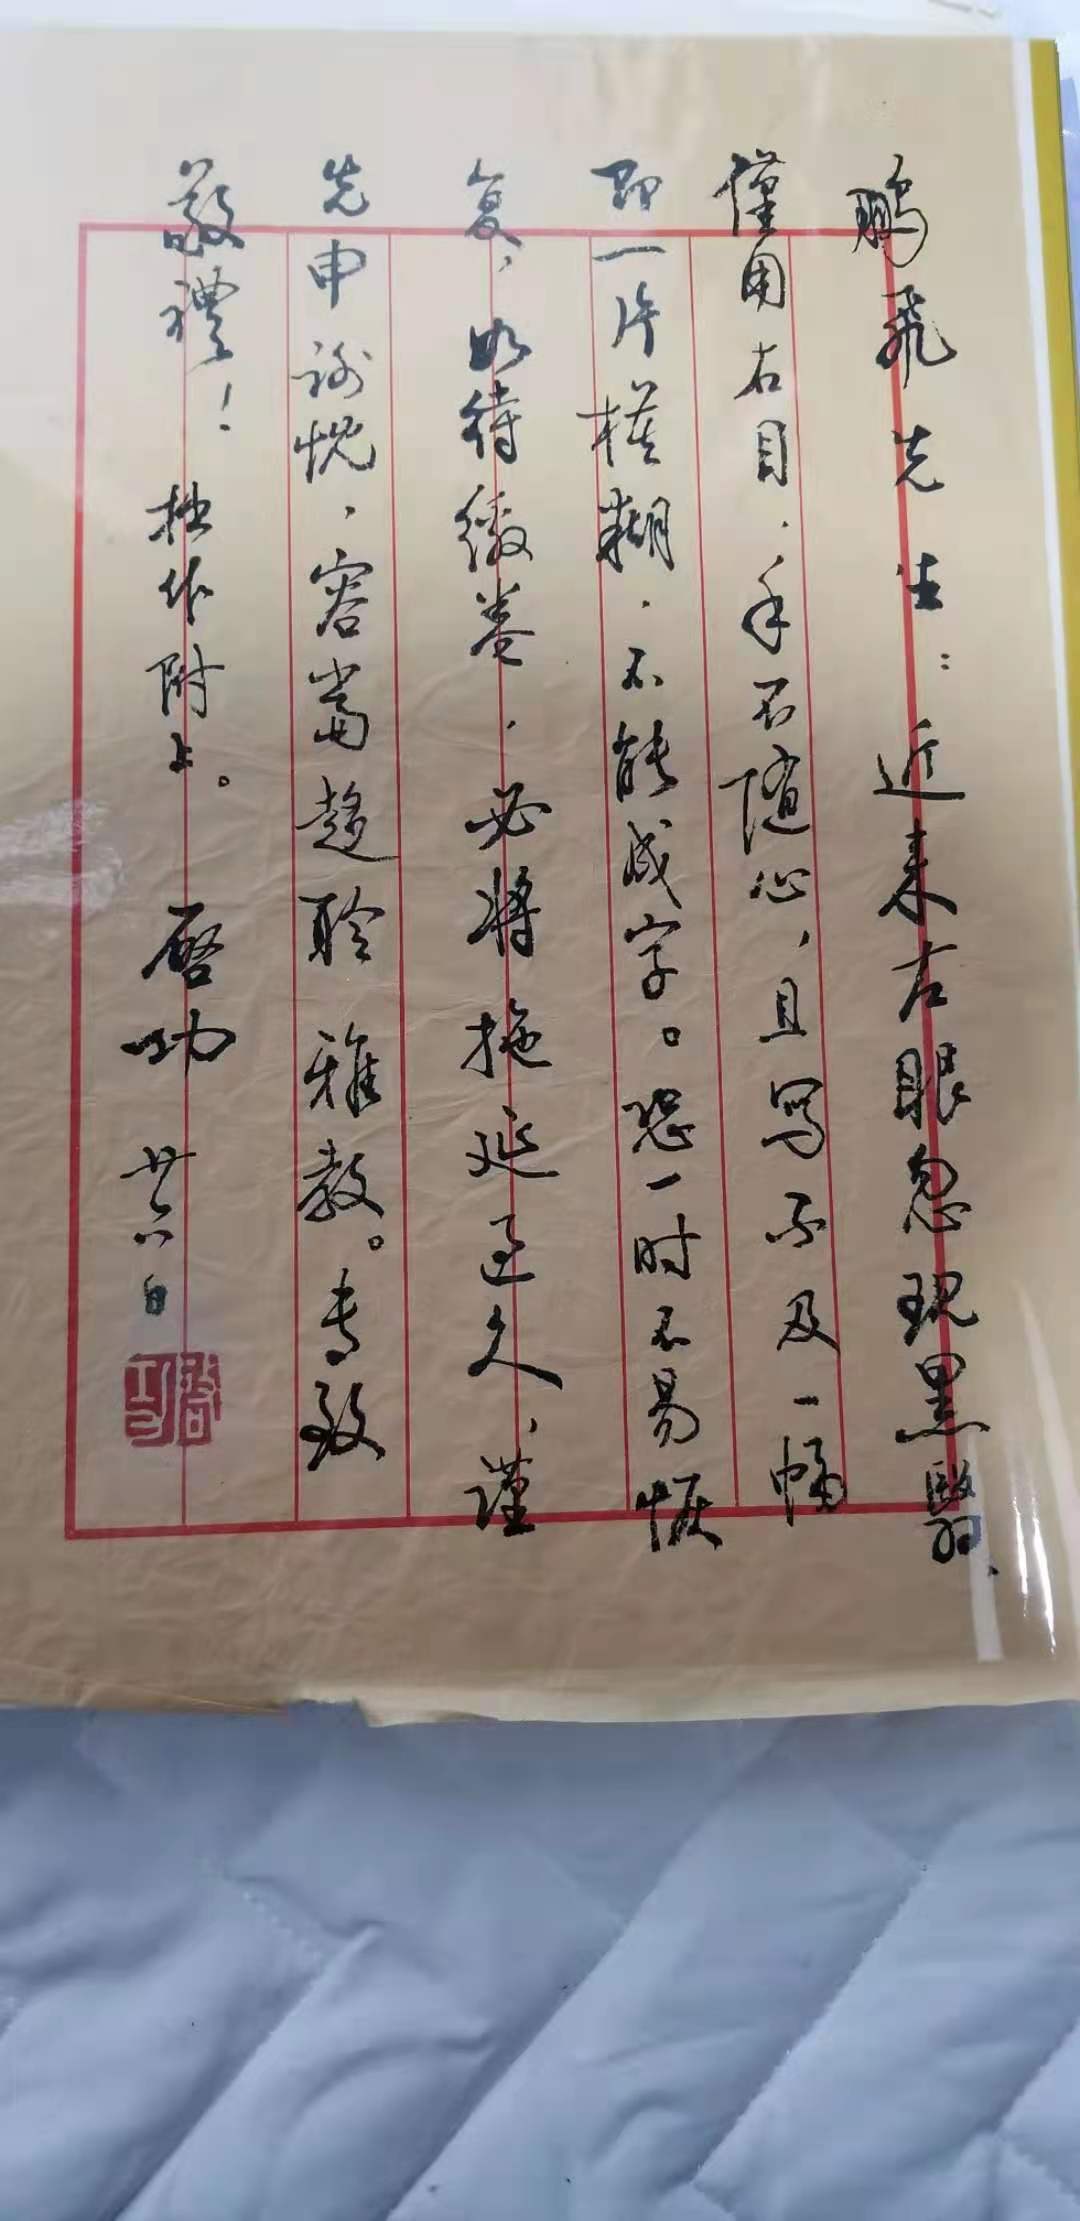 鹏飛先生：近来左眼忽现黑翳、
僅用右目，手不随心，且写不及一幅
即一片模糊，不能成字。恐一时不易恢
复，如待缴卷，必将拖延过久，谨
先申谢忱，容当趋聆雅教。专致
敬禮！拙作附上。启功 廿六日
启功